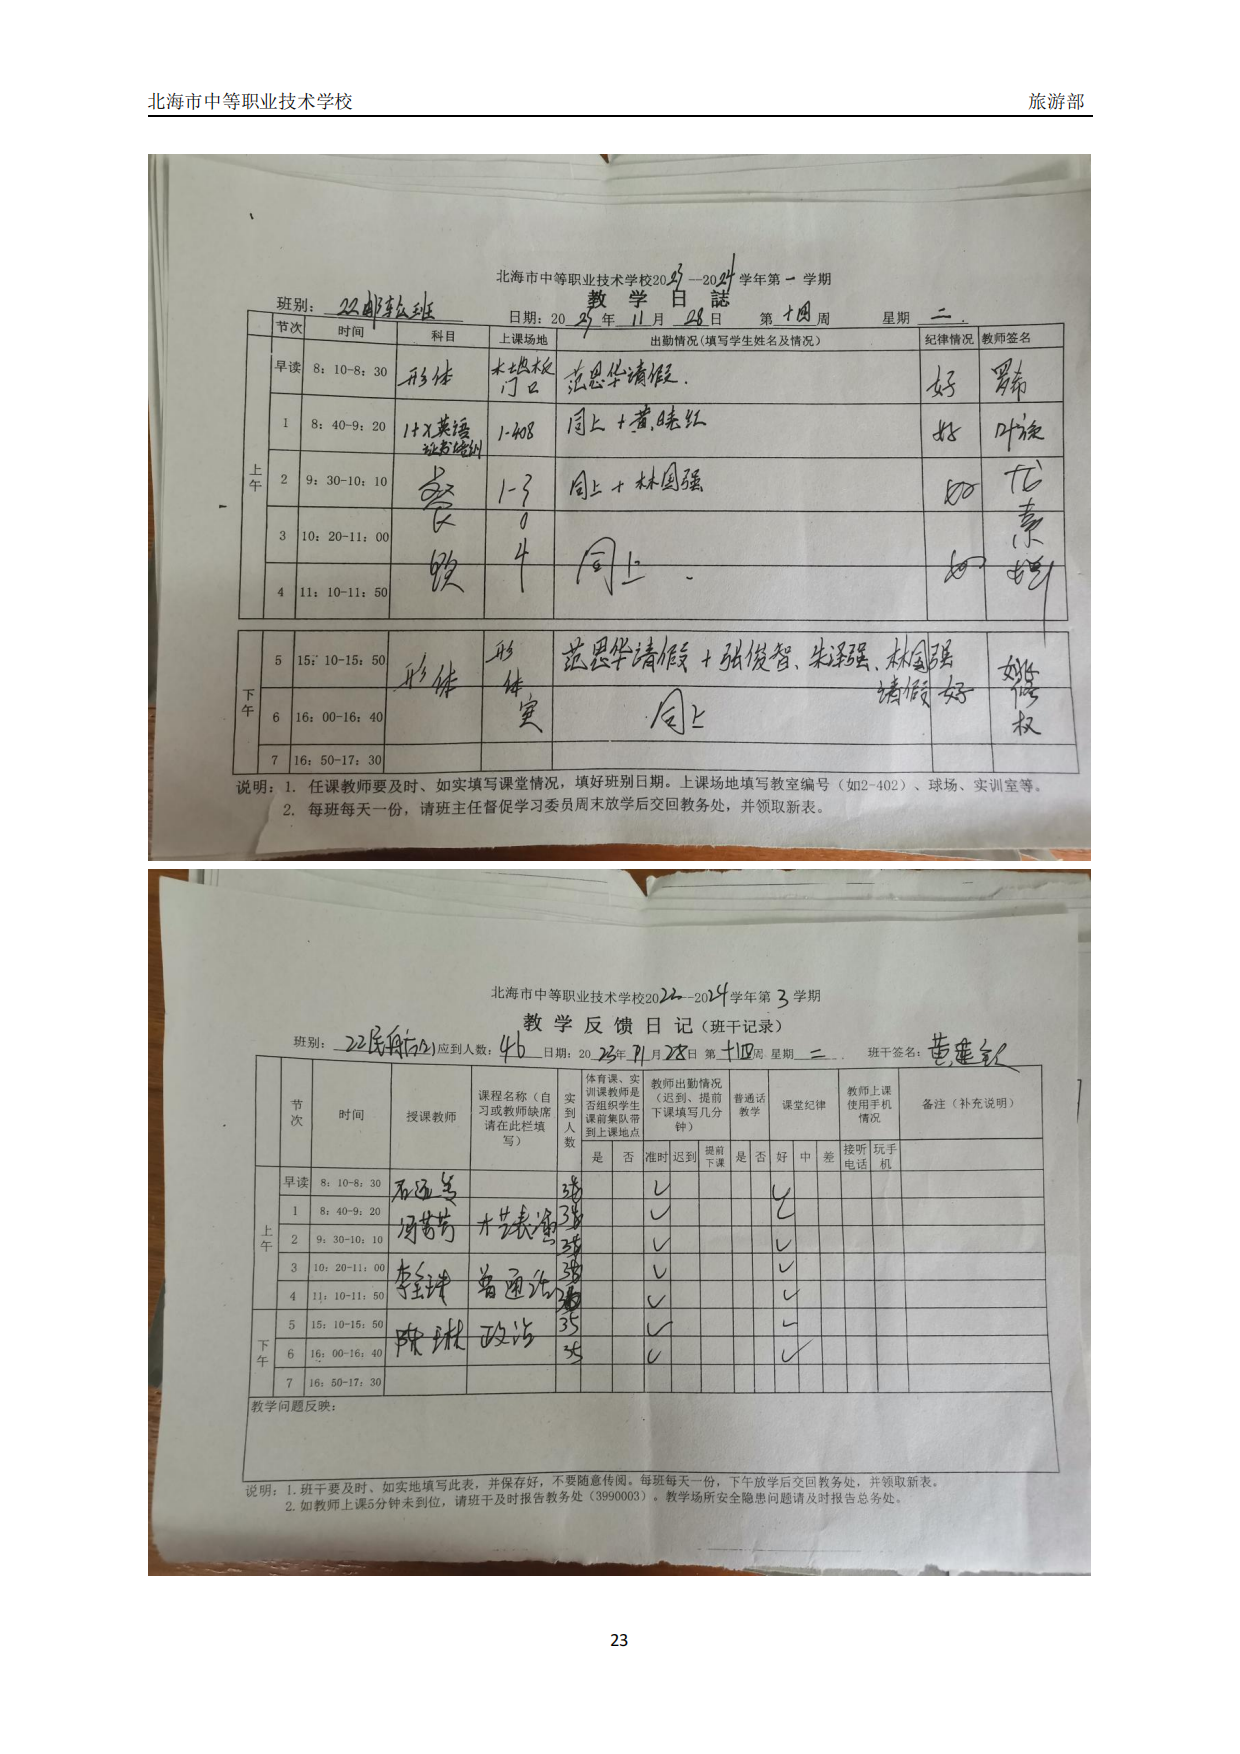 北海市中等职业技术学校 旅游部
北海市中等职业技术学校2023--2024学年第一学期
教 学 日 誌
班别：22邮轮班 日期：2023年11月28日 第十四周 星期二
节次 时间 科目 上课场地 出勤情况(填写学生姓名及情况) 纪律情况 教师签名
上午
早读 8：10-8：30 形体 木地板门口 范思华请假. 好 罗希
1 8：40-9：20 1+X英语证书培训 1-408 同上+黄晓红 好 叶
2 9：30-10：10 餐 1-3 同上+林国强 好
3 10：20-11：00 0
4 11：10-11：50 4 同上 好
下午
5 15：10-15：50 形体 形体室 范思华请假+张俊智、朱泽强、林国强请假 好 姚修权
6 16：00-16：40 同上
7 16：50-17：30
说明：1. 任课教师要及时、如实填写课堂情况，填好班别日期。上课场地填写教室编号（如2-402）、球场、实训室等。
2. 每班每天一份，请班主任督促学习委员周末放学后交回教务处，并领取新表。
北海市中等职业技术学校2022--2024学年第3学期
教 学 反 馈 日 记（班干记录）
班别：22民航(2) 应到人数：46 日期：2023年11月28日 第十四周 星期二 班干签名：黄
节次 时间 授课教师 课程名称（自习或教师缺席请在此栏填写） 实到人数 体育课、实训课教师是否组织学生课前集队带到上课地点 教师出勤情况（迟到、提前下课填写几分钟） 普通话教学 课堂纪律 教师上课使用手机情况 备注（补充说明）
是 否 准时 迟到 提前下课 是 否 好 中 差 接听电话 玩手机
上午
早读 8：10-8：30 35 ✓ ✓
1 8：40-9：20 冯芳芳 才艺表演 35 ✓ ✓
2 9：30-10：10 35 ✓ ✓
3 10：20-11：00 李 普通话 35 ✓ ✓
4 11：10-11：50 ✓ ✓
下午
5 15：10-15：50 陈琳 政治 35 ✓ ✓
6 16：00-16：40 35 ✓ ✓
7 16：50-17：30
教学问题反映：
说明：1.班干要及时、如实地填写此表，并保存好，不要随意传阅。每班每天一份，下午放学后交回教务处，并领取新表。
2.如教师上课5分钟未到位，请班干及时报告教务处（3990003）。教学场所安全隐患问题请及时报告总务处。
23